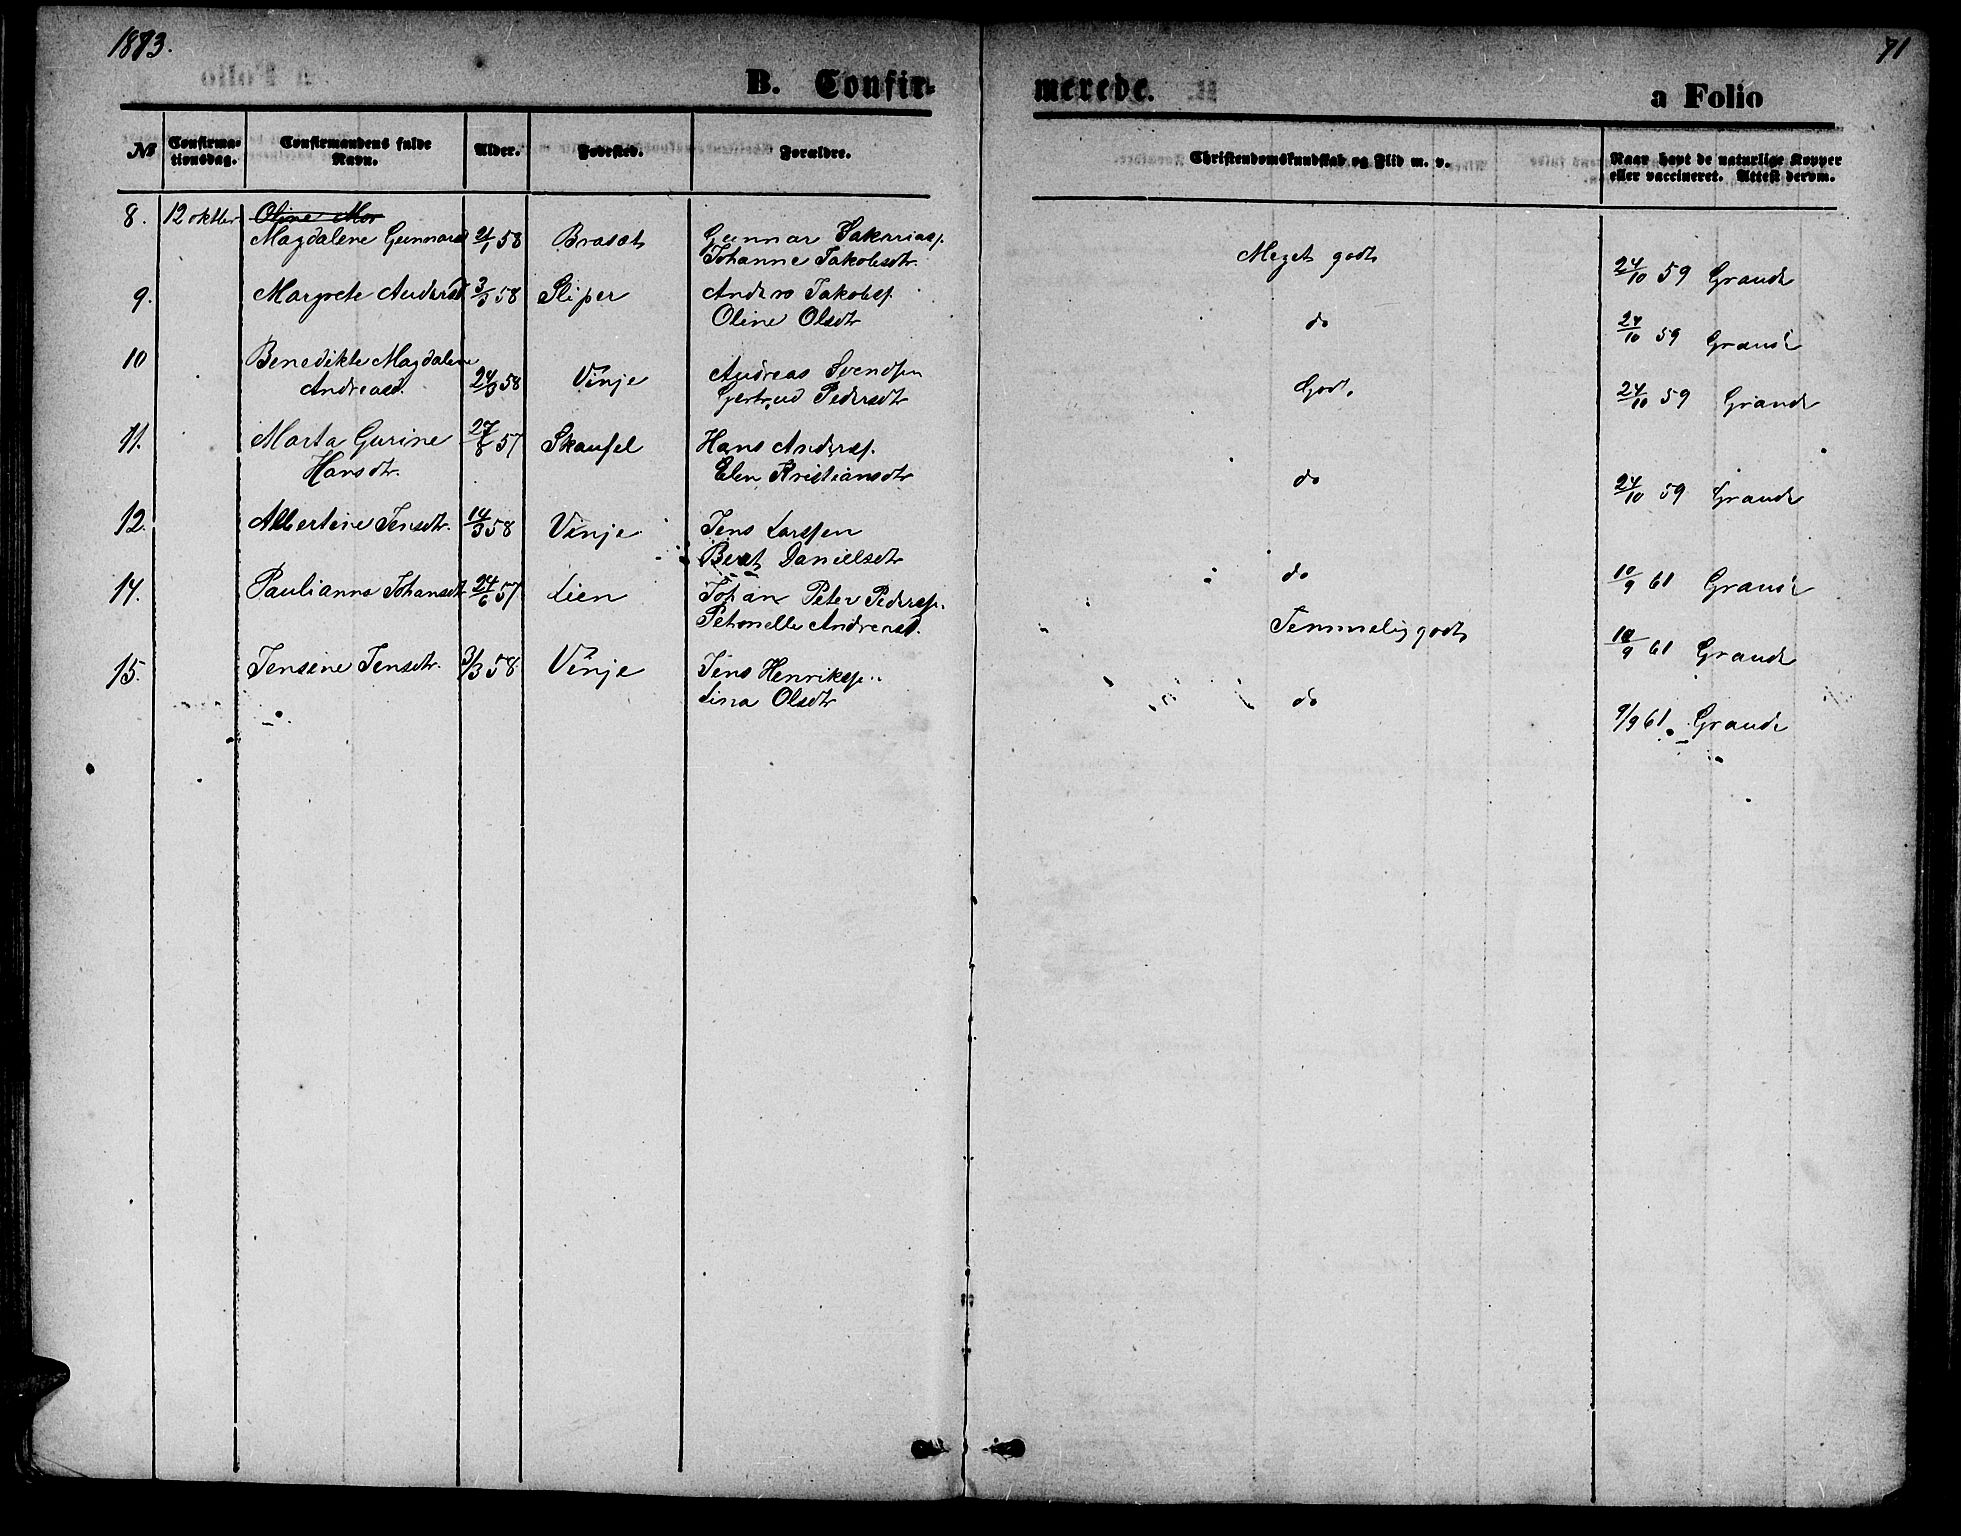 1873.
71
B. Confir-
merede.
a Folio
No
Confirma-
tionsdag.
Confirmandens fulde
Navn.
Alder.
Fødested.
Forældre.
Christendomskundskab og Flid m. v.
Naar havt de naturlige Kopper
eller vaccineret. Attest derom.
8. 12 oktber Oline Mar
Magdalene Gunnarsd 21/1 58 Brasæt Gunnar Sakariass.
Johanne Jakobsdtr.
Meget godt
24/10 59 Grande
9. Margrete Andersd 3/3 58 Sliper Anders Jakobss.
Oline Olsdtr
do
24/10 59 Grande
10 Benedikte Magdalene
Andreasd. 24/3 58 Vinje Andreas Svendsen
Gertrud Pedersdtr
Godt.
24/10 59 Grande
11. Marta Gurine 27/8 57 Skaufel Hans Anderss.
Hansdtr. Elen Kristiansdtr
do
24/10 59 Grande
12. Albertine Jensdtr. 14/3 58 Vinje Jens Larssen
Beret Danielsdtr
do
10/9 61 Grande
14. Paulianna Johansdtr 24/6 57 Lien Johan Peter Pederss.
Petronelle Andreasd.
Temmelig godt
10/9 61 Grande
15. Jensine Jensdtr. 3/3 58 Vinje Jens Henrikss.
Lina Olsdtr
do
9/9 61 Grande